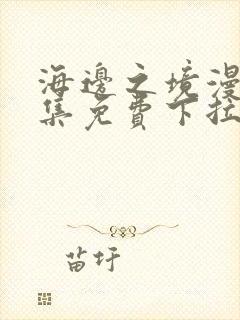 海邊之境漫
集免費下拉
苗圩